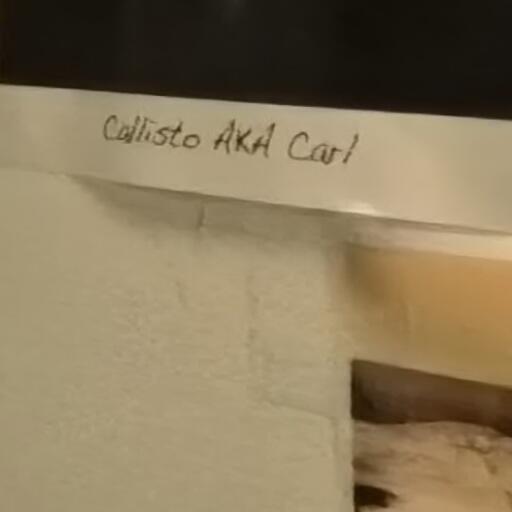 Callisto AKA Carl